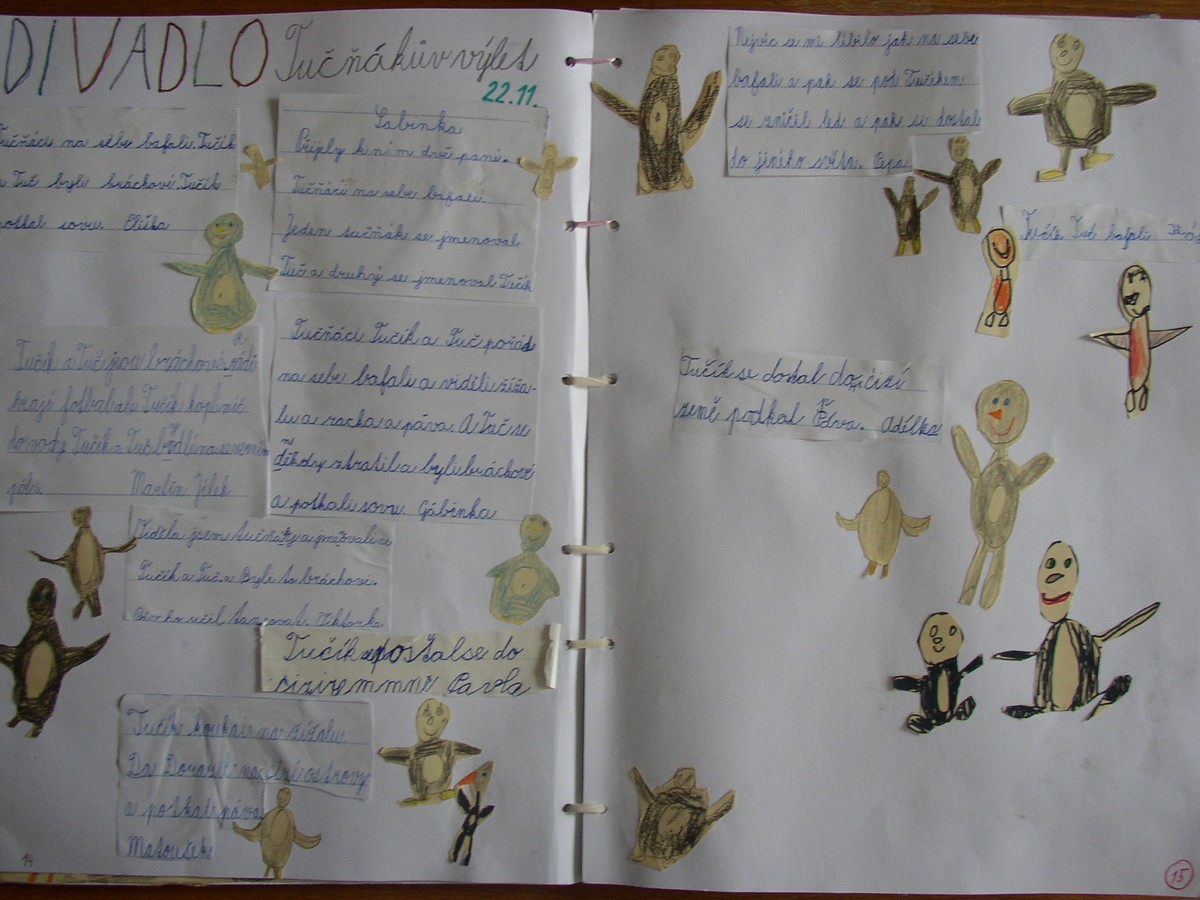 DIVADLO Tučňákův výlet
22.11.
Tučňáci na sebe bafali. Tučík
a Tuč byli bráchové Tučík
potkal sovu. Eliška
Sabinka
Přijely k nám dvě paní.
Tučňáci na sebe bafali.
Jeden tučňák se jmenoval
Tuč a druhý se jmenoval Tučík
Tučík a Tuč jsou bráchové rádi
hrají fotbal Tučík kopl míč
do vody Tučík a Tuč bydlí na severním
pólu. Martin Jílek
Tučňáci Tučík a Tuč pořád
na sebe bafali a viděli žíža-
lu a racka a páva. A Tuč se
někdy ztratil a byli bráchové
a potkali sovu. Gábinka
Viděla jsem tučňáky a jmenovali se
Tučík a Tuč a Byli to bráchové.
Páv ho učil tancovat. Viktorka
Tučík postal se do
cizi zemmně Pavla
Tučík koukal na žížalu
Da Doraził na cizí ostrovy
a potkal páva
Matoušek
14
Nejvíc se mi líbilo jak na sebe
bafali a pak se pod Tučíkem
se zničil led a pak se dostal
do jiného světa. Pepa
Tučík Tuč bafali
Tučík se dostal do cizí
země podkal Páva. Adélka
15